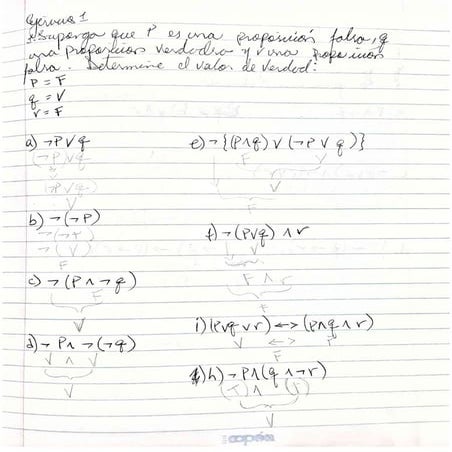 Ejercicio 1
Suponga que P es una proposición falsa, q
una proposicion verdadera y r una proposicion
falsa. Determine el valor de verdad:
P = F
q = V
r = F
a) ¬P V q
(¬P) V q
V
¬P V q
V
b) ¬(¬P)
¬(¬F)
¬(V)
F
c) ¬(P ∧ ¬q)
F
V
d) ¬P ∧ ¬(¬q)
V ∧ V
V
e) ¬{(P∧q) V (¬P V q)}
F V
V
f) ¬(PVq) ∧ r
V
F ∧ r
F
i) (PVq V r) <-> (p∧q ∧ r)
V <-> F
F
h) ¬P∧(q ∧ ¬r)
V
copán